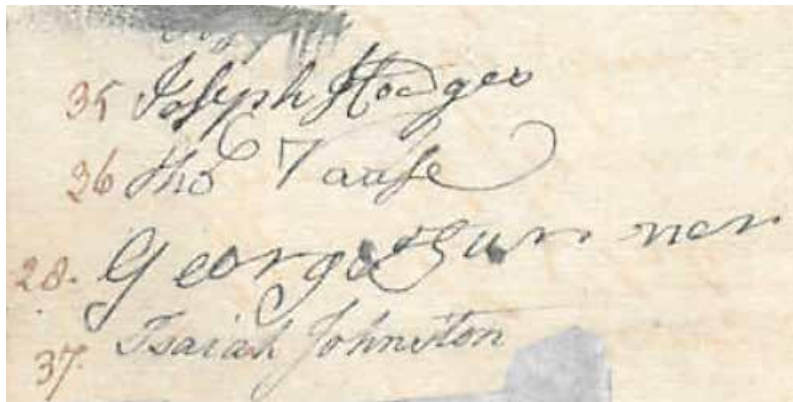 35 Joseph Hodges
36 Tho Vause
28. George Gunner
37. Isaiah Johnston